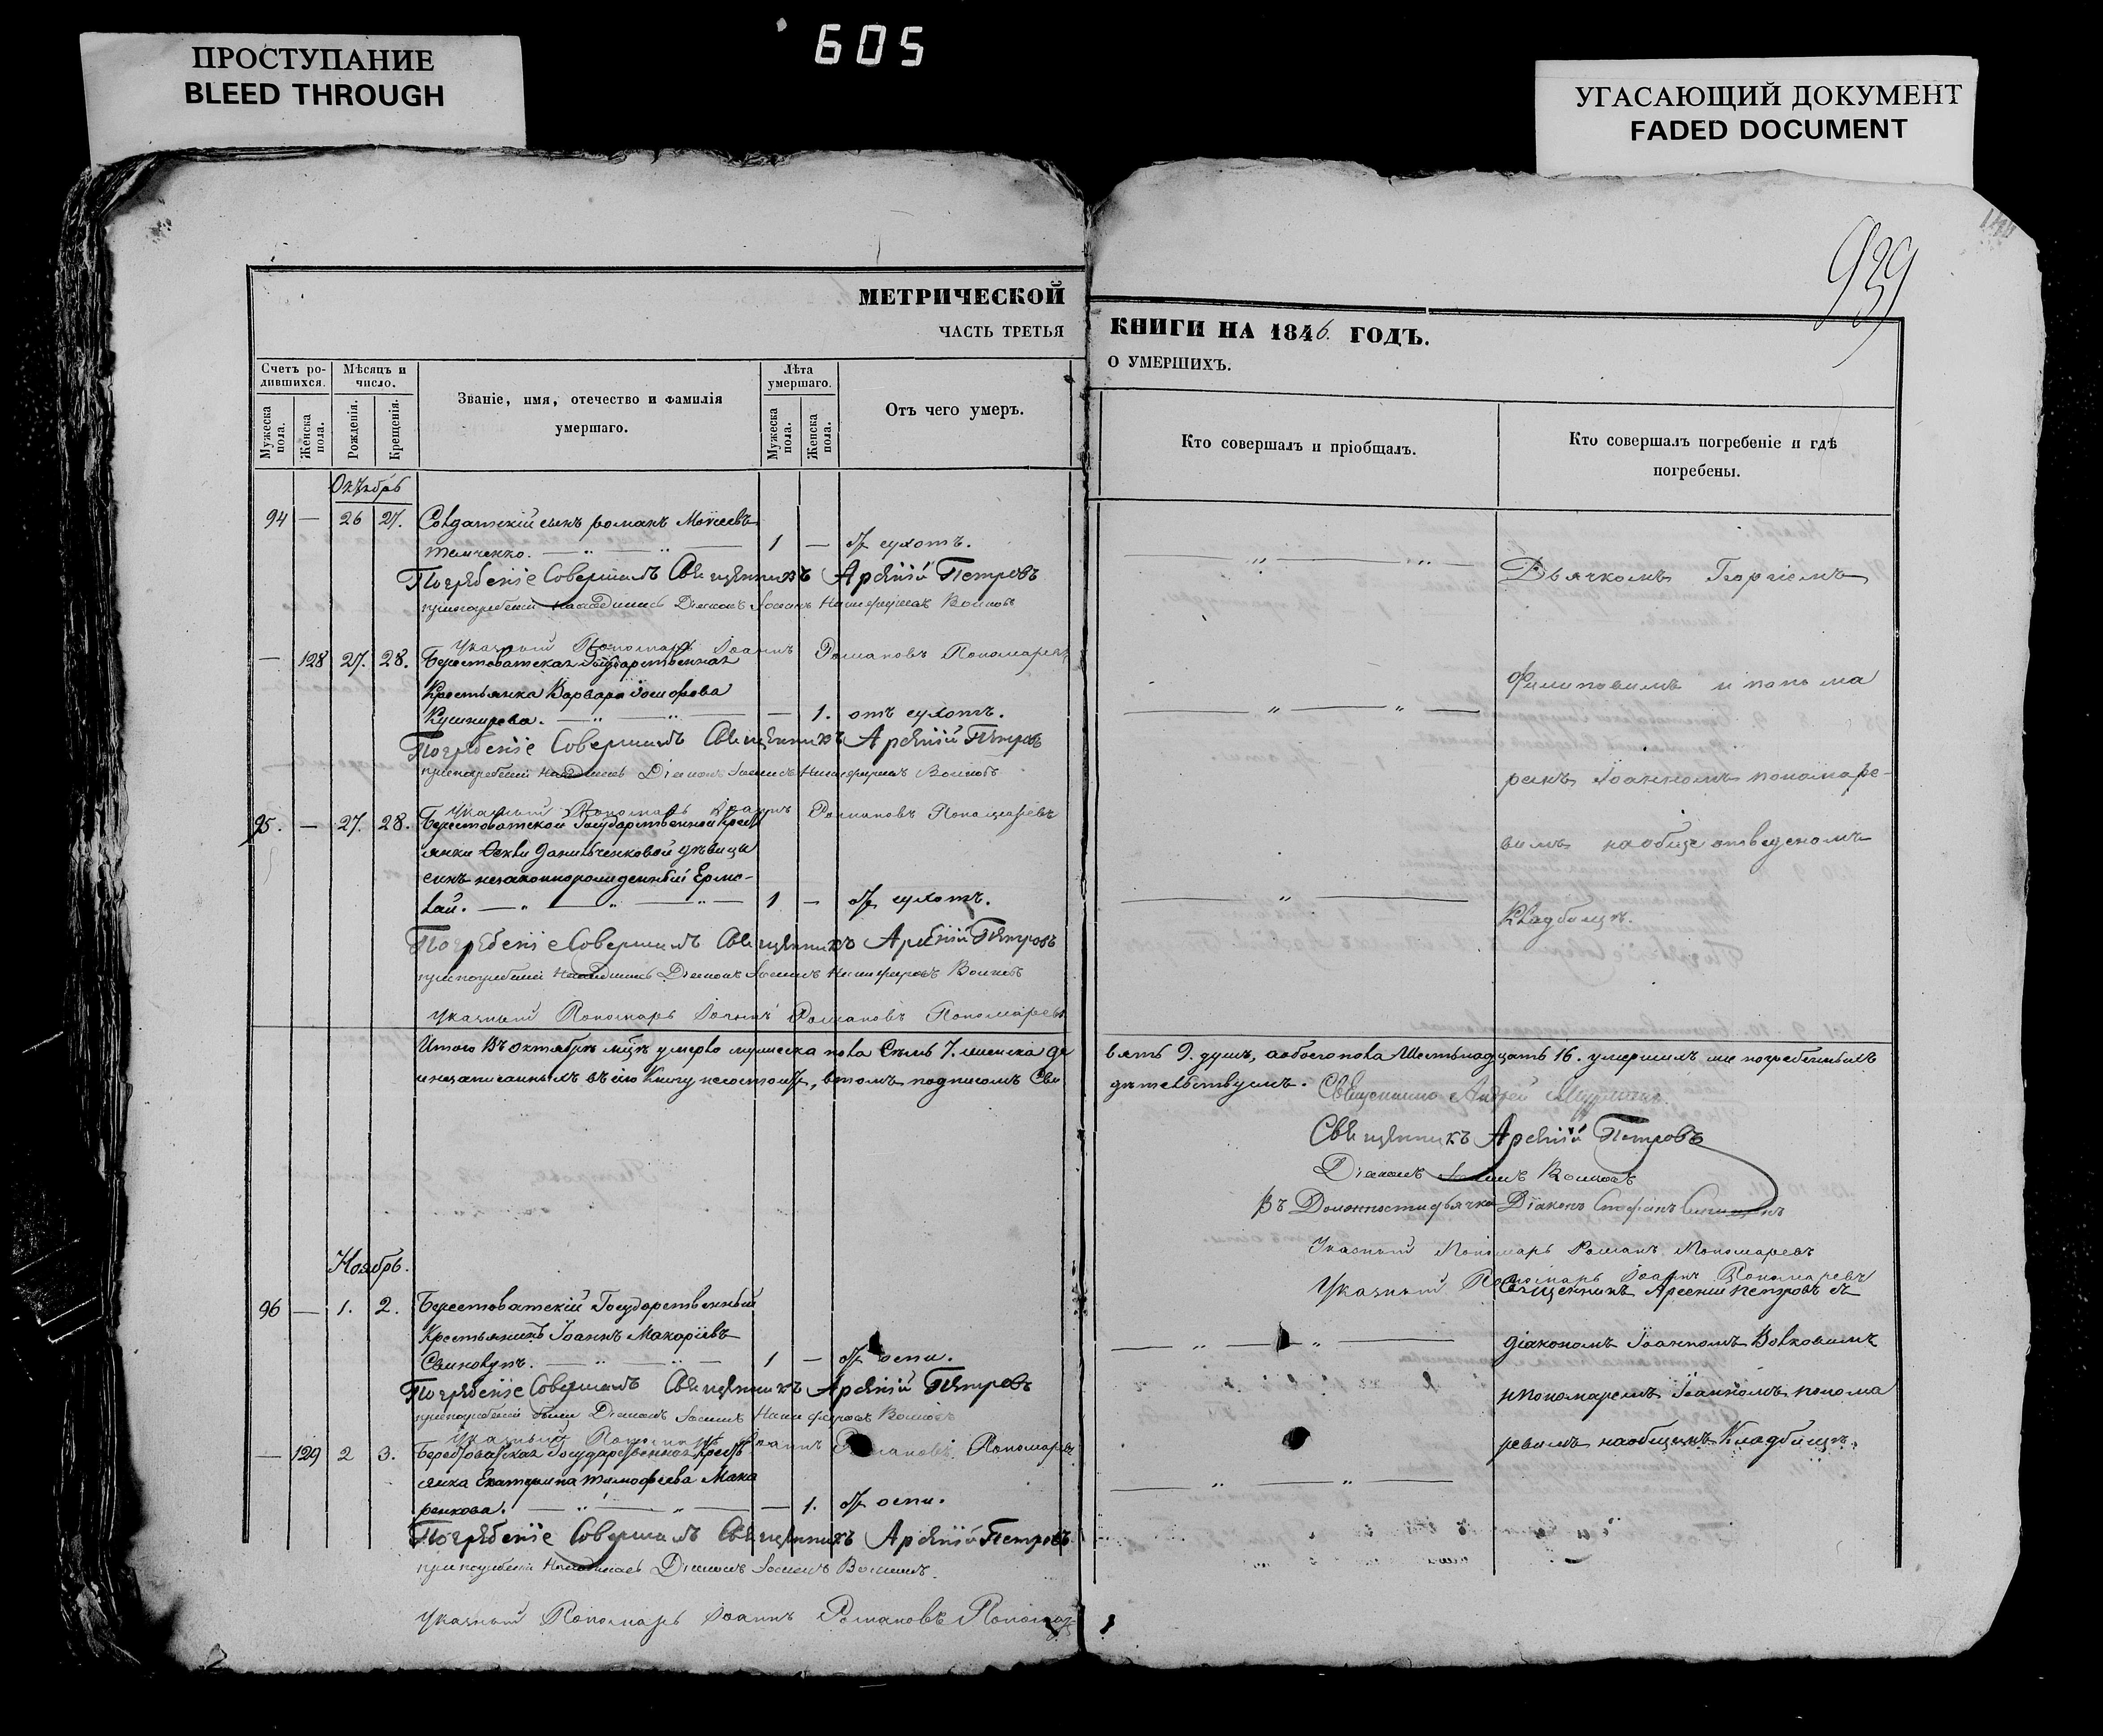 605
ПРОСТУПАНИЕ
BLEED THROUGH
УГАСАЮЩИЙ ДОКУМЕНТ
FADED DOCUMENT
939
МЕТРИЧЕСКОЙ
ЧАСТЬ ТРЕТЬЯ
КНИГИ НА 1846. ГОДЪ.
О УМЕРШИХЪ.
Счетъ ро-
дившихся.
Мужеска пола.
Женска пола.
Мѣсяцъ и
число.
Рожденія.
Крещенія.
Званіе, имя, отечество и фамилія
умершаго.
Лѣта
умершаго.
Мужеска пола.
Женска пола.
Отъ чего умеръ.
Кто совершалъ и пріобщалъ.
Кто совершалъ погребеніе и гдѣ
погребены.
Октябрь
94 — 26 27. Солдатскій сынъ Романъ Моисеевъ
Темченко. 1 — отъ сухотъ.
Погребеніе Совершалъ Священникъ Арсеній Петровъ
при погребеніи находились Діаконъ Іоаннъ Никифоровъ Волковъ
Указный Пономарь Іоаннъ Романовъ Пономаревъ
— 128 27. 28. Берестоватская Государственная
Крестьянка Варвара
Кушнирева. — 1. отъ сухотъ.
Погребеніе Совершалъ Священникъ Арсеній Петровъ
при погребеніи находились Діаконъ Іоаннъ Никифоровъ Волковъ
Указный Пономарь Іоаннъ Романовъ Пономаревъ
95. — 27. 28. Берестоватской Государственной крест
янки Данильченковой дѣвицы
сынъ незаконнорожденный Ермо-
лай. 1 — отъ сухотъ.
Погребеніе Совершалъ Священникъ Арсеній Петровъ
при погребеніи находились Діаконъ Іоаннъ Никифоровъ Волковъ
Указный Пономарь Іоаннъ Романовъ Пономаревъ
Дьячкомъ Георгіемъ
Филиповимъ и понома
ремъ Іоанномъ пономаре-
вимъ на обще отведеномъ
Кладбищѣ.
Итого Въ октябрѣ мцѣ умерло мужеска пола Семь 7. женска де
вять 9. душъ, а обоего пола Шестьнадцать 16. умершихъ ми погребенныхъ
и незаписанныхъ въ сію Книгу несостоитъ, втомъ подписомъ Сви
дѣтельствуемъ. Священникъ Андрей
Священникъ Арсеній Петровъ
Діаконъ Іоаннъ Волковъ
Въ Должности дьячка Діаконъ Стефанъ
Указный Пономарь Романъ Пономаревъ
Указный Пономарь Іоаннъ Пономаревъ
Ноябрь.
96 — 1. 2. Берестоватскій Государственный
Крестьянинъ Іоаннъ Макаріевъ
1 — отъ оспи.
Погребеніе Совершалъ Священникъ Арсеній Петровъ
при погребеніи были Діаконъ Іоаннъ Никифоровъ Волковъ
Указный Пономарь Іоаннъ Романовъ Пономаревъ
— 129 2 3. Берестоватская Государственная Крест
янка Екатерина Тимофеева Мака
ренкова. — 1. отъ оспи.
Погребеніе Совершалъ Священникъ Арсеній Петровъ
при погребеніи находились Діаконъ Іоаннъ Волковъ.
Указный Пономарь Іоаннъ Романовъ Пономар
Священникъ Арсеній Петровъ съ
діакономъ Іоанномъ Волковимъ
и пономаремъ Іоанномъ понома
ревимъ на общемъ Кладбищѣ.